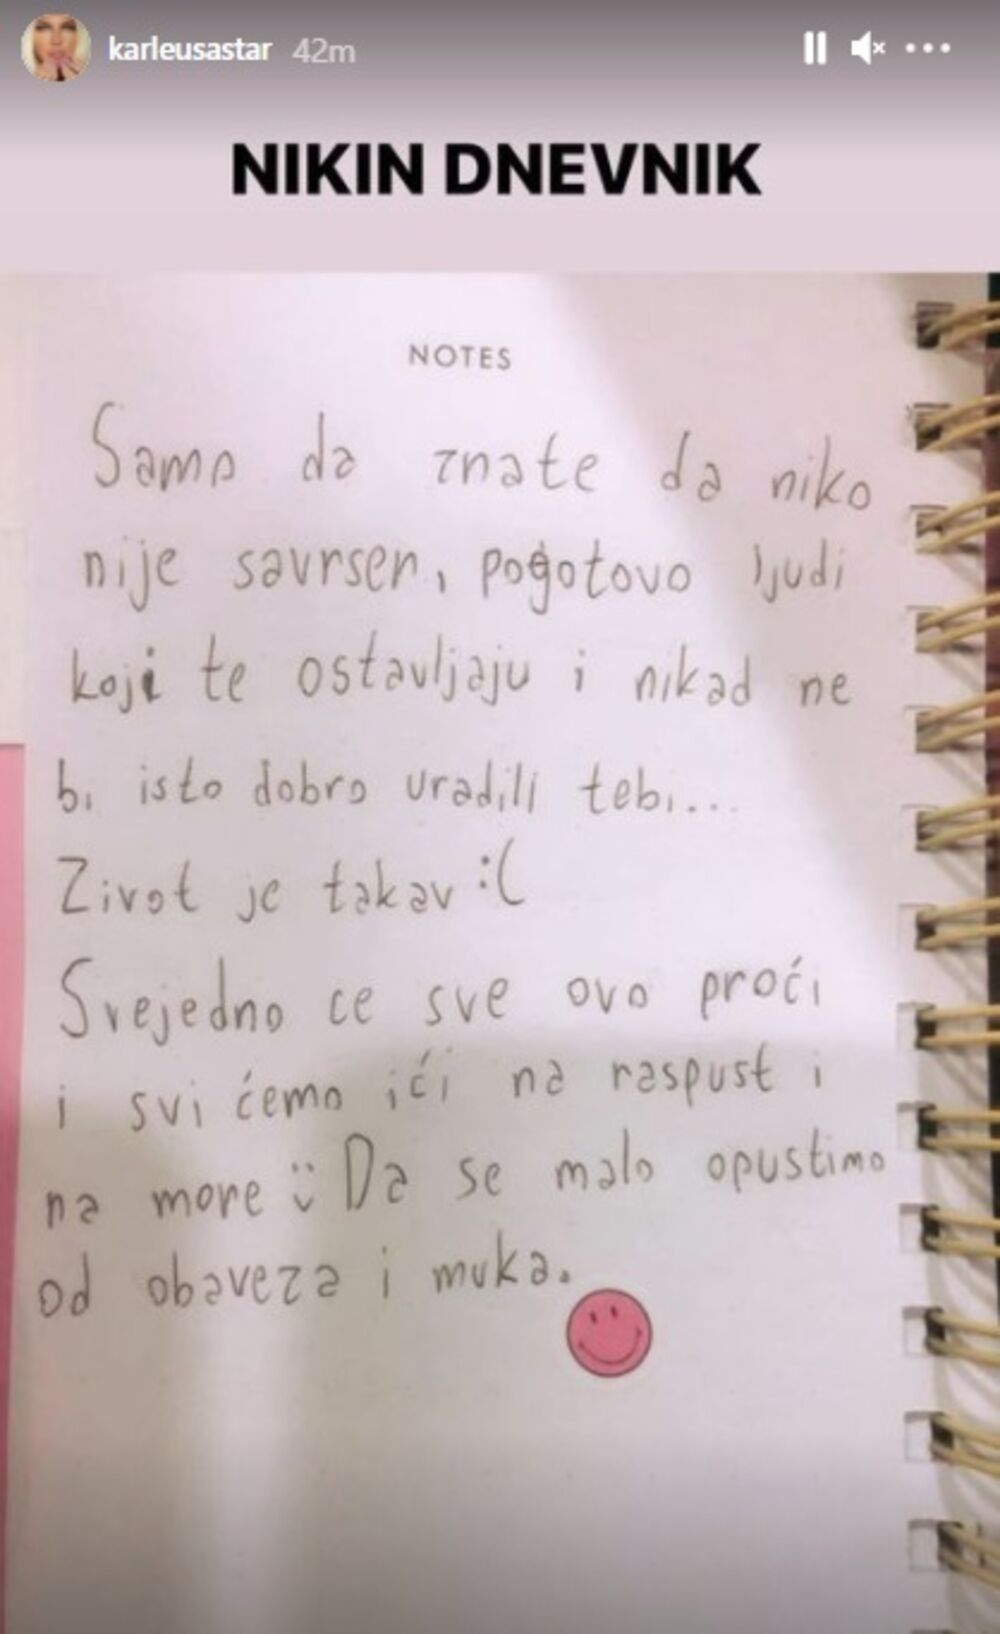 karleusastar 42m
NIKIN DNEVNIK
NOTES
Samo da znate da niko
nije savrsen, pogotovo ljudi
koji te ostavljaju i nikad ne
bi isto dobro uradili tebi...
Zivot je takav :(
Svejedno ce sve ovo proći
i svi ćemo ići na raspust i
na more :) Da se malo opustimo
od obaveza i muka.